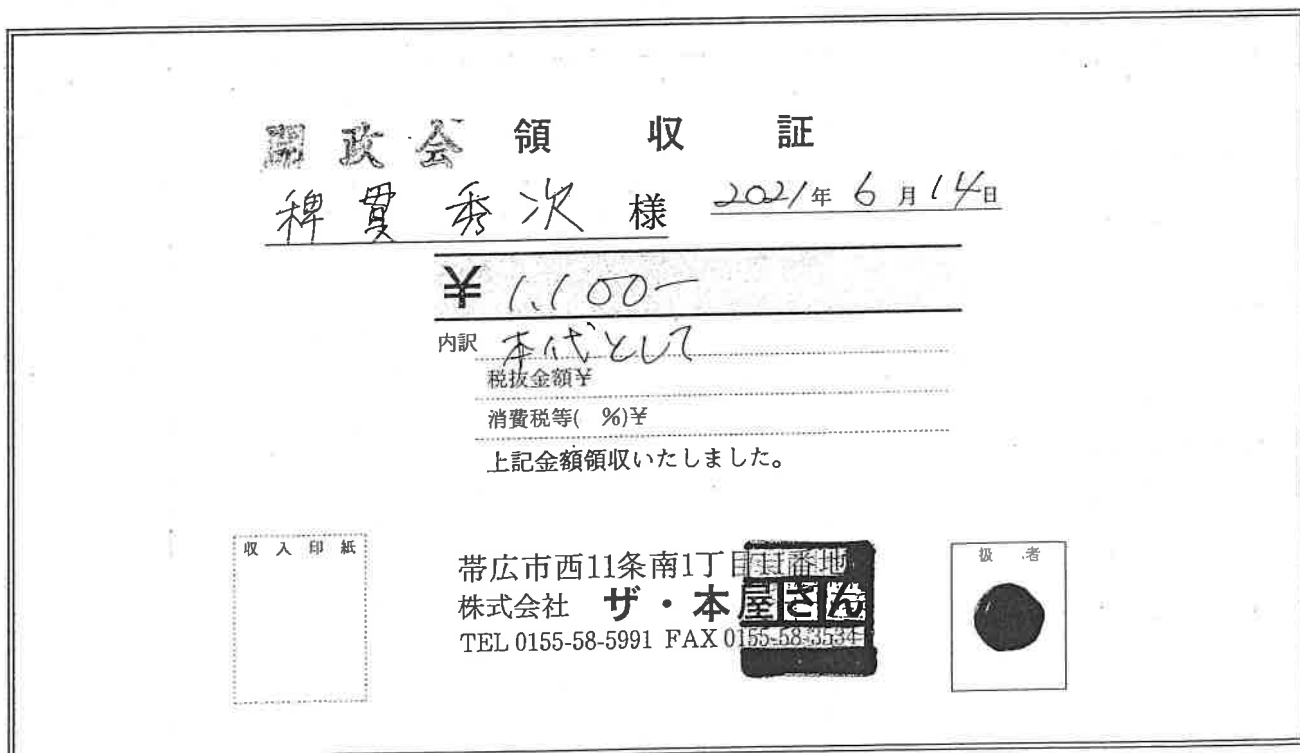 開政会 領収証
稗貫秀次 様 2021年6月14日
¥ 1,100-
内訳 本代として
税抜金額¥
消費税等( %)¥
上記金額領収いたしました。
収入印紙
帯広市西11条南1丁目11番地
株式会社 ザ・本屋さん
TEL 0155-58-5991 FAX 0155-58-3534
扱者